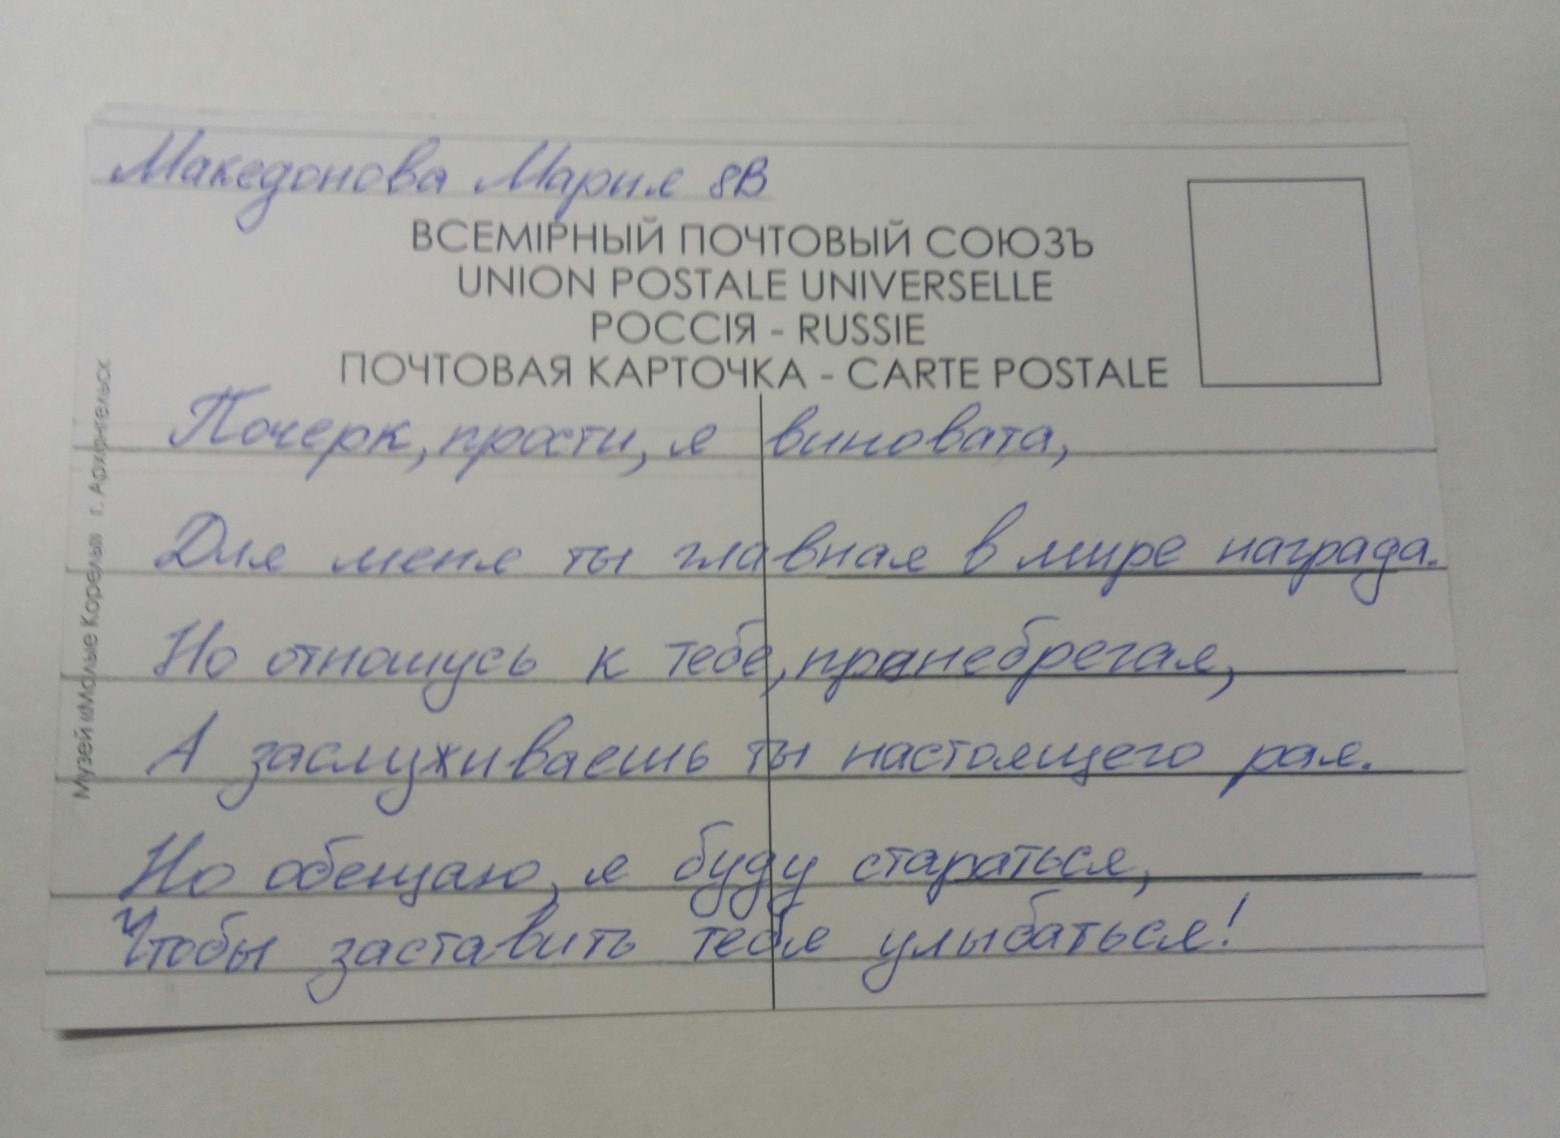 Македонова Мария 8В
ВСЕМІРНЫЙ ПОЧТОВЫЙ СОЮЗЪ
UNION POSTALE UNIVERSELLE
РОССІЯ - RUSSIE
ПОЧТОВАЯ КАРТОЧКА - CARTE POSTALE
Почерк, прости, я виновата,
Для меня ты главная в мире награда.
Но отношусь к тебе, пранебрегая,
А заслуживаешь ты настоящего рая.
Но обещаю, я буду стараться,
Чтобы заставить тебя улыбаться!
Музей «Малые Корелы» г. Архангельск